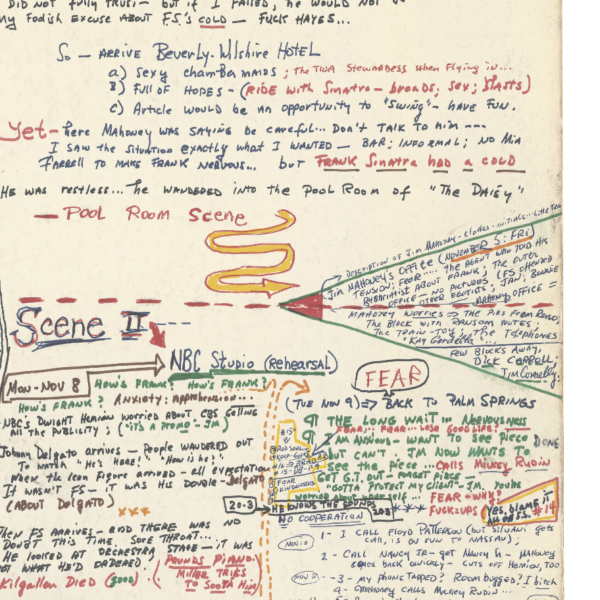 DID NOT fully TRUST - but if I FAILED, he WOULD NOT
my Fodish EXCUSE ABOUT F.S.'s COLD — FUCK HAYES...
So — ARRIVE BEVERLY-WILSHIRE HOTEL
a) Sexy chambermaids ; the TWA Stewardess when flying in...
B) Full of HOPES - (RIDE with Sinatra - broads; sex; BLASTS)
C) Article would be an opportunity to "Swing" - HAVE FUN.
Yet - here Mahoney was saying be careful... Don't TALK TO him ---
I saw the situation exactly what I WANTED — BAR; INFORMAL; NO Mia
FARRELL TO MAKE FRANK NERVOUS... but FRANK Sinatra had a COLD
HE WAS restless... he WANDERED into the Pool Room of "The Daisy"
— Pool Room Scene
DESCRIPTION OF Jim Mahoney - clothes - initials -
Jim MAHONEY'S OFFICE (NOVEMBER 5: FRI)
TENSION; FEAR.... The AGENT WHO TOLD HIS
Hypnotist ABOUT FRANK; THE OUTER
OFFICE — NO PICTURES (FS offended
OTHER EGOTISTS; JAN; BONNIE
MAHONEY OFFICE =
MAHONEY WORRIES => THE PIX FROM
The Block with RANSOM NOTES;
The TRAIN-TOY; The Telephones
"Kay Gardella ..."
FEW BLOCKS AWAY,
DICK CARROLL;
Jim Connelly.
Scene II
NBC Studio (Rehearsal)
Mon - NOV 8
HOW'S FRANK? HOW'S FRANK?
HOW'S FRANK? Anxiety: Apprehension...
NBC's Dwight Hemion worried ABOUT CBS getting
all THE PUBLICITY; ("it's A PROMO - JM)
Johnny Delgato arrives - People WANDERED OUT
TO WATCH "HE'S HERE!" "How is he?"
When the icon Figure arrived - all expectation
IT WASN'T FS - IT WAS his DOUBLE - Delgato
(ABOUT DELGATO)
xxx
Then FS ARRIVES - and there WAS NO
DOUBT THIS TIME. SORE THROAT...
HE looked at ORCHESTRA STAGE - it was
NOT WHAT he'd ORDERED.
(POUNDS PIANO: Miller TRIES TO SOOTH Him)
Kilgallen Died (good)
FEAR
(TUE NOV 9) => BACK TO PALM SPRINGS
¶ THE LONG WAIT IN NERVOUSNESS
FEAR... FEAR... LOSE GOOD LIFE?
¶ I AM ANXIOUS - WANT TO SEE Piece DONE
BUT CAN'T. JM NOW WANTS TO
see the piece... CALLS MICKEY RUDIN
GET G.T. OUT - FORGET PIECE -
"GOTTA PROTECT MY CLIENT" - JM. You're
worried ABOUT yourself... FEAR - WHY?
20-3
HE KNOWS THE SOUNDS
203
*** FUCK-UPS
(YES, blame it all on FS. #14
NO COOPERATION
NOV 10
1 - I CALL FLOYD PATTERSON (but SILVANI gets
CALL, IS ON FLIGHT TO NASSAU).
2 - CALL NANCY JR - got NANCY Sr - MAHONEY
COMES BACK QUICKLY - CUTS OFF HEMION, TOO
NOV 11
-3 - MY PHONE TAPPED? ROOM bugged? I bitch
a - MAHONEY CALLS MICKEY RUDIN...